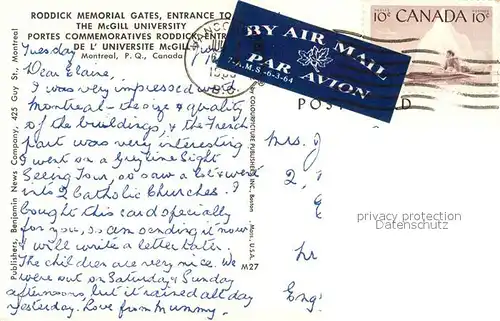 RODDICK MEMORIAL GATES, ENTRANCE TO
THE McGILL UNIVERSITY
PORTES COMMEMORATIVES RODDICK, ENTR
DE L' UNIVERSITE McGILL
Montreal, P. Q., Canada
Publishers, Benjamin News Company, 425 Guy St., Montreal
Tuesday
Dear Elaine,
I was very impressed with
Montreal - the size & quality
of the buildings, & the French
part was very interesting
I went on a Greyline Sight
Seeing Tour, so saw a lot & went
into 2 Catholic Churches. I
bought this card specially
for you, so am sending it now
& will write a letter later.
The children are very nice. We
were out on Saturday & Sunday
afternoons, but it rained all day
yesterday. Love from Mummy.
COLOURPICTURE PUBLISHERS, INC., Boston, Mass., U.S.A.
M27
VANCO
BY AIR MAIL
PAR AVION
7-A.M.S-6-3-64
10c CANADA 10c
POST RD
Mrs. J
2,
Eng
privacy protection
Datenschutz